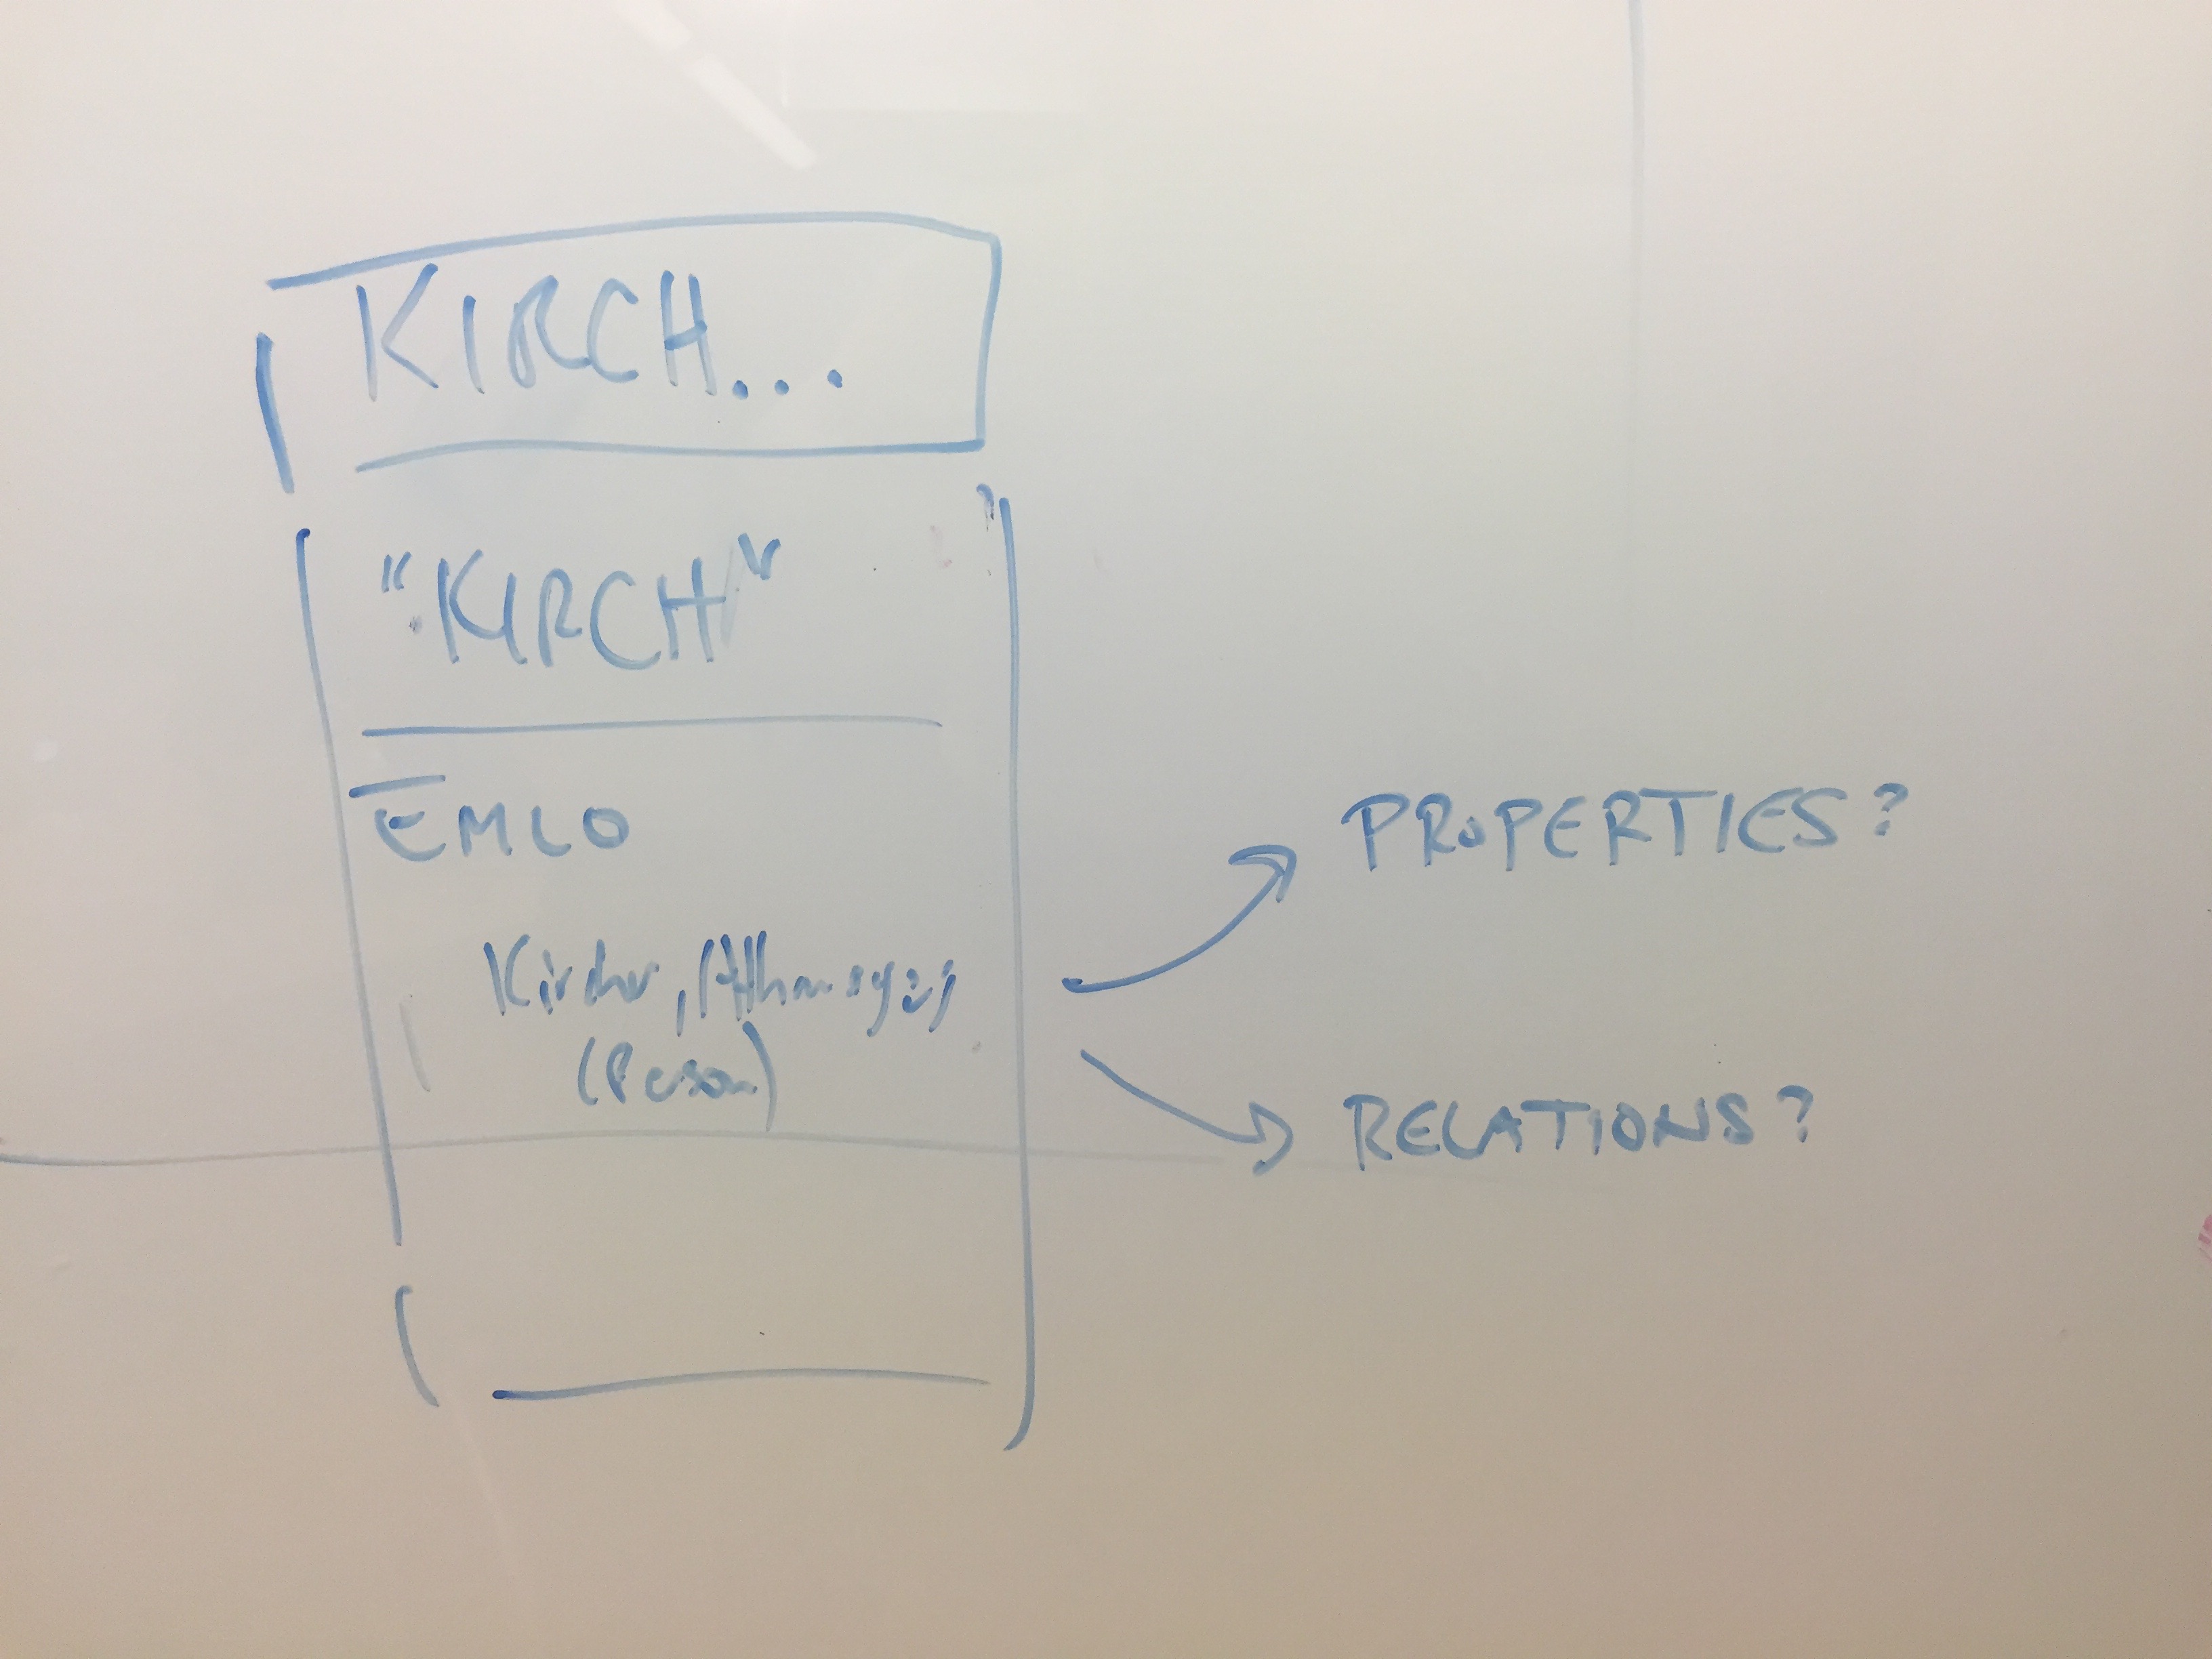 KIRCH...
"KIRCH"
EMLO
Kircher, Athanasius
(Person)
PROPERTIES?
RELATIONS?